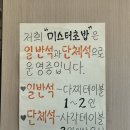 저희 "미스터초밥"은
일반석과 단체석으로
운영중입니다.
♥일반석 - 다찌테이블
1~2인
♥단체석 - 사각테이블